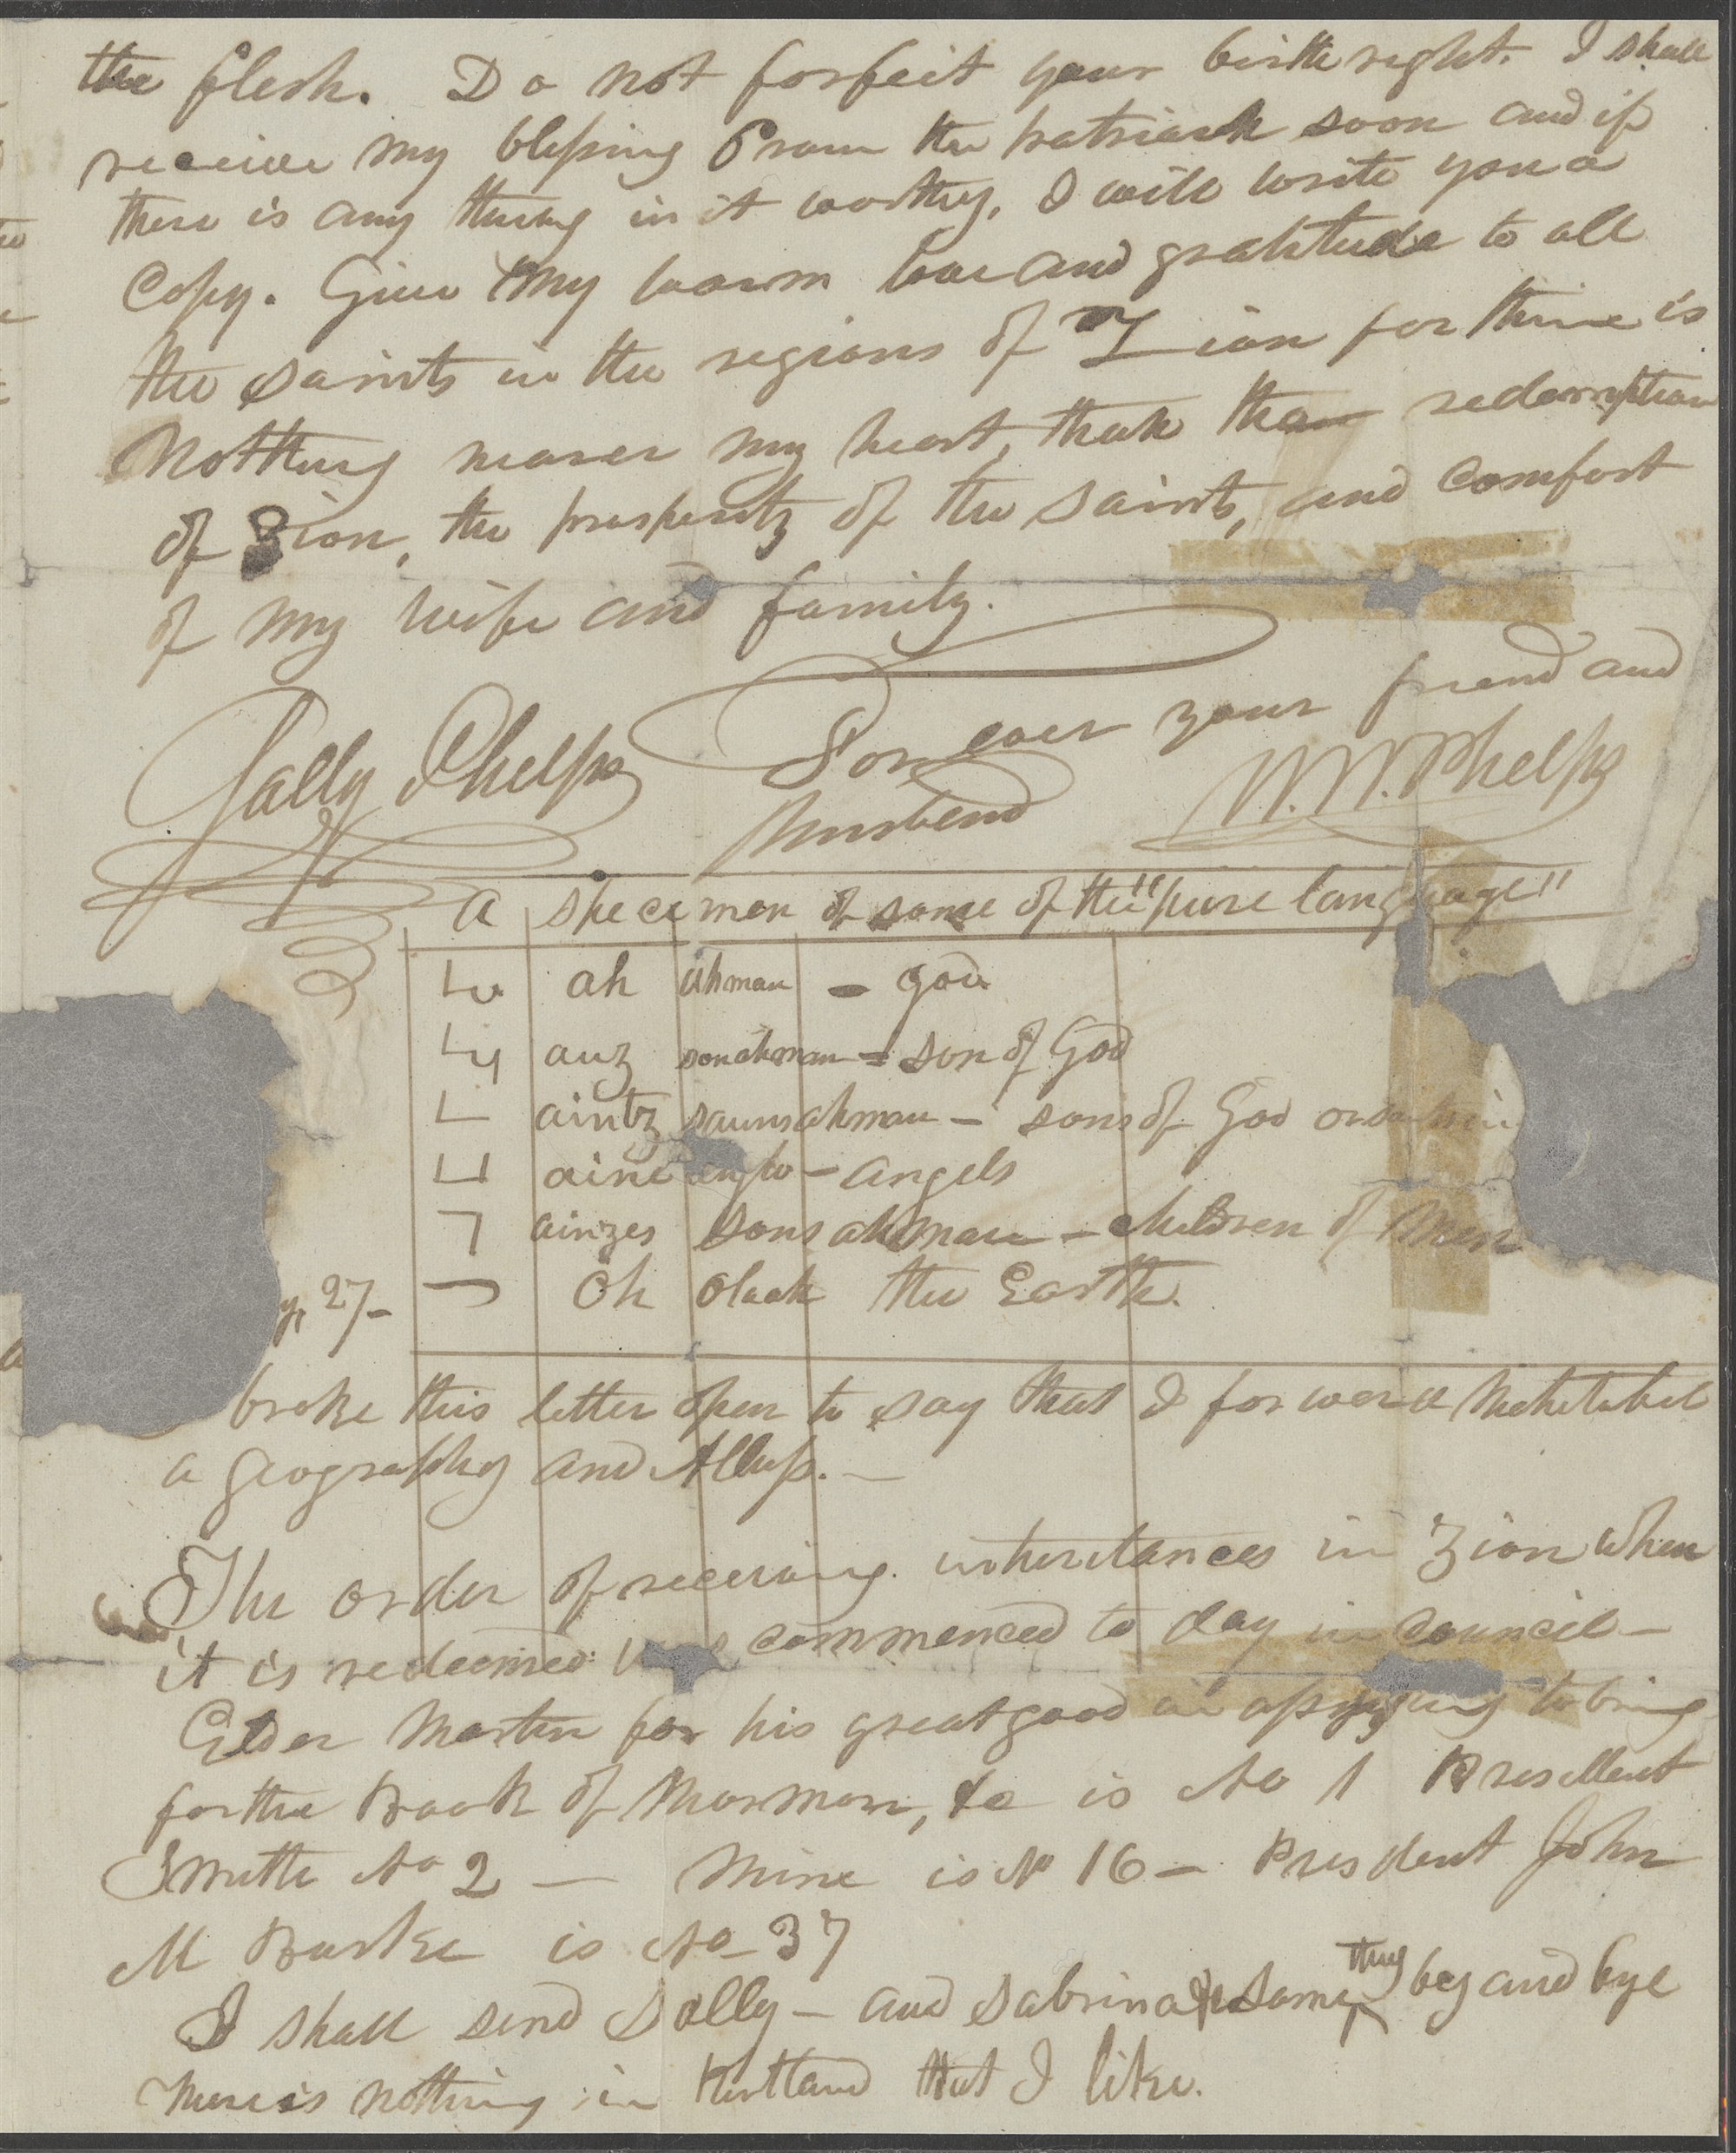 the flesh. Do not forfeit your birthright. I shall
receive my blessing from the patriarch soon and if
there is any thing in it worthy, I will write you a
copy. Give my warm love and gratitude to all
the saints in the regions of Zion for thine is
nothing nearer my heart, than the redemption
of Zion, the prosperity of the saints, and comfort
of my wife and family.
Forever your friend and
Sally Phelps husband W. W. Phelps
a specimen of some of the "pure language"
ah ahman - god
auz sonahman - son of God
aintz saunsahman - sons of God or
aine anglo - angels
ainzes sonsahman - children of men
y, 27- oh olaah the Earth.
broke this letter open to say that I forward Mehetabel
a geography and Atlass. -
The order of receiving inheritances in Zion when
it is redeemed commenced to day in council -
Elder Martin for his great good in assisting to bring
forthe Book of Mormon, &c is No 1 President
Smith No 2 - Mine is No 16 - President John
M Burke is No 37
I shall send Sally - and Sabrina some thing by and bye
there is nothing in Kirtland that I like.